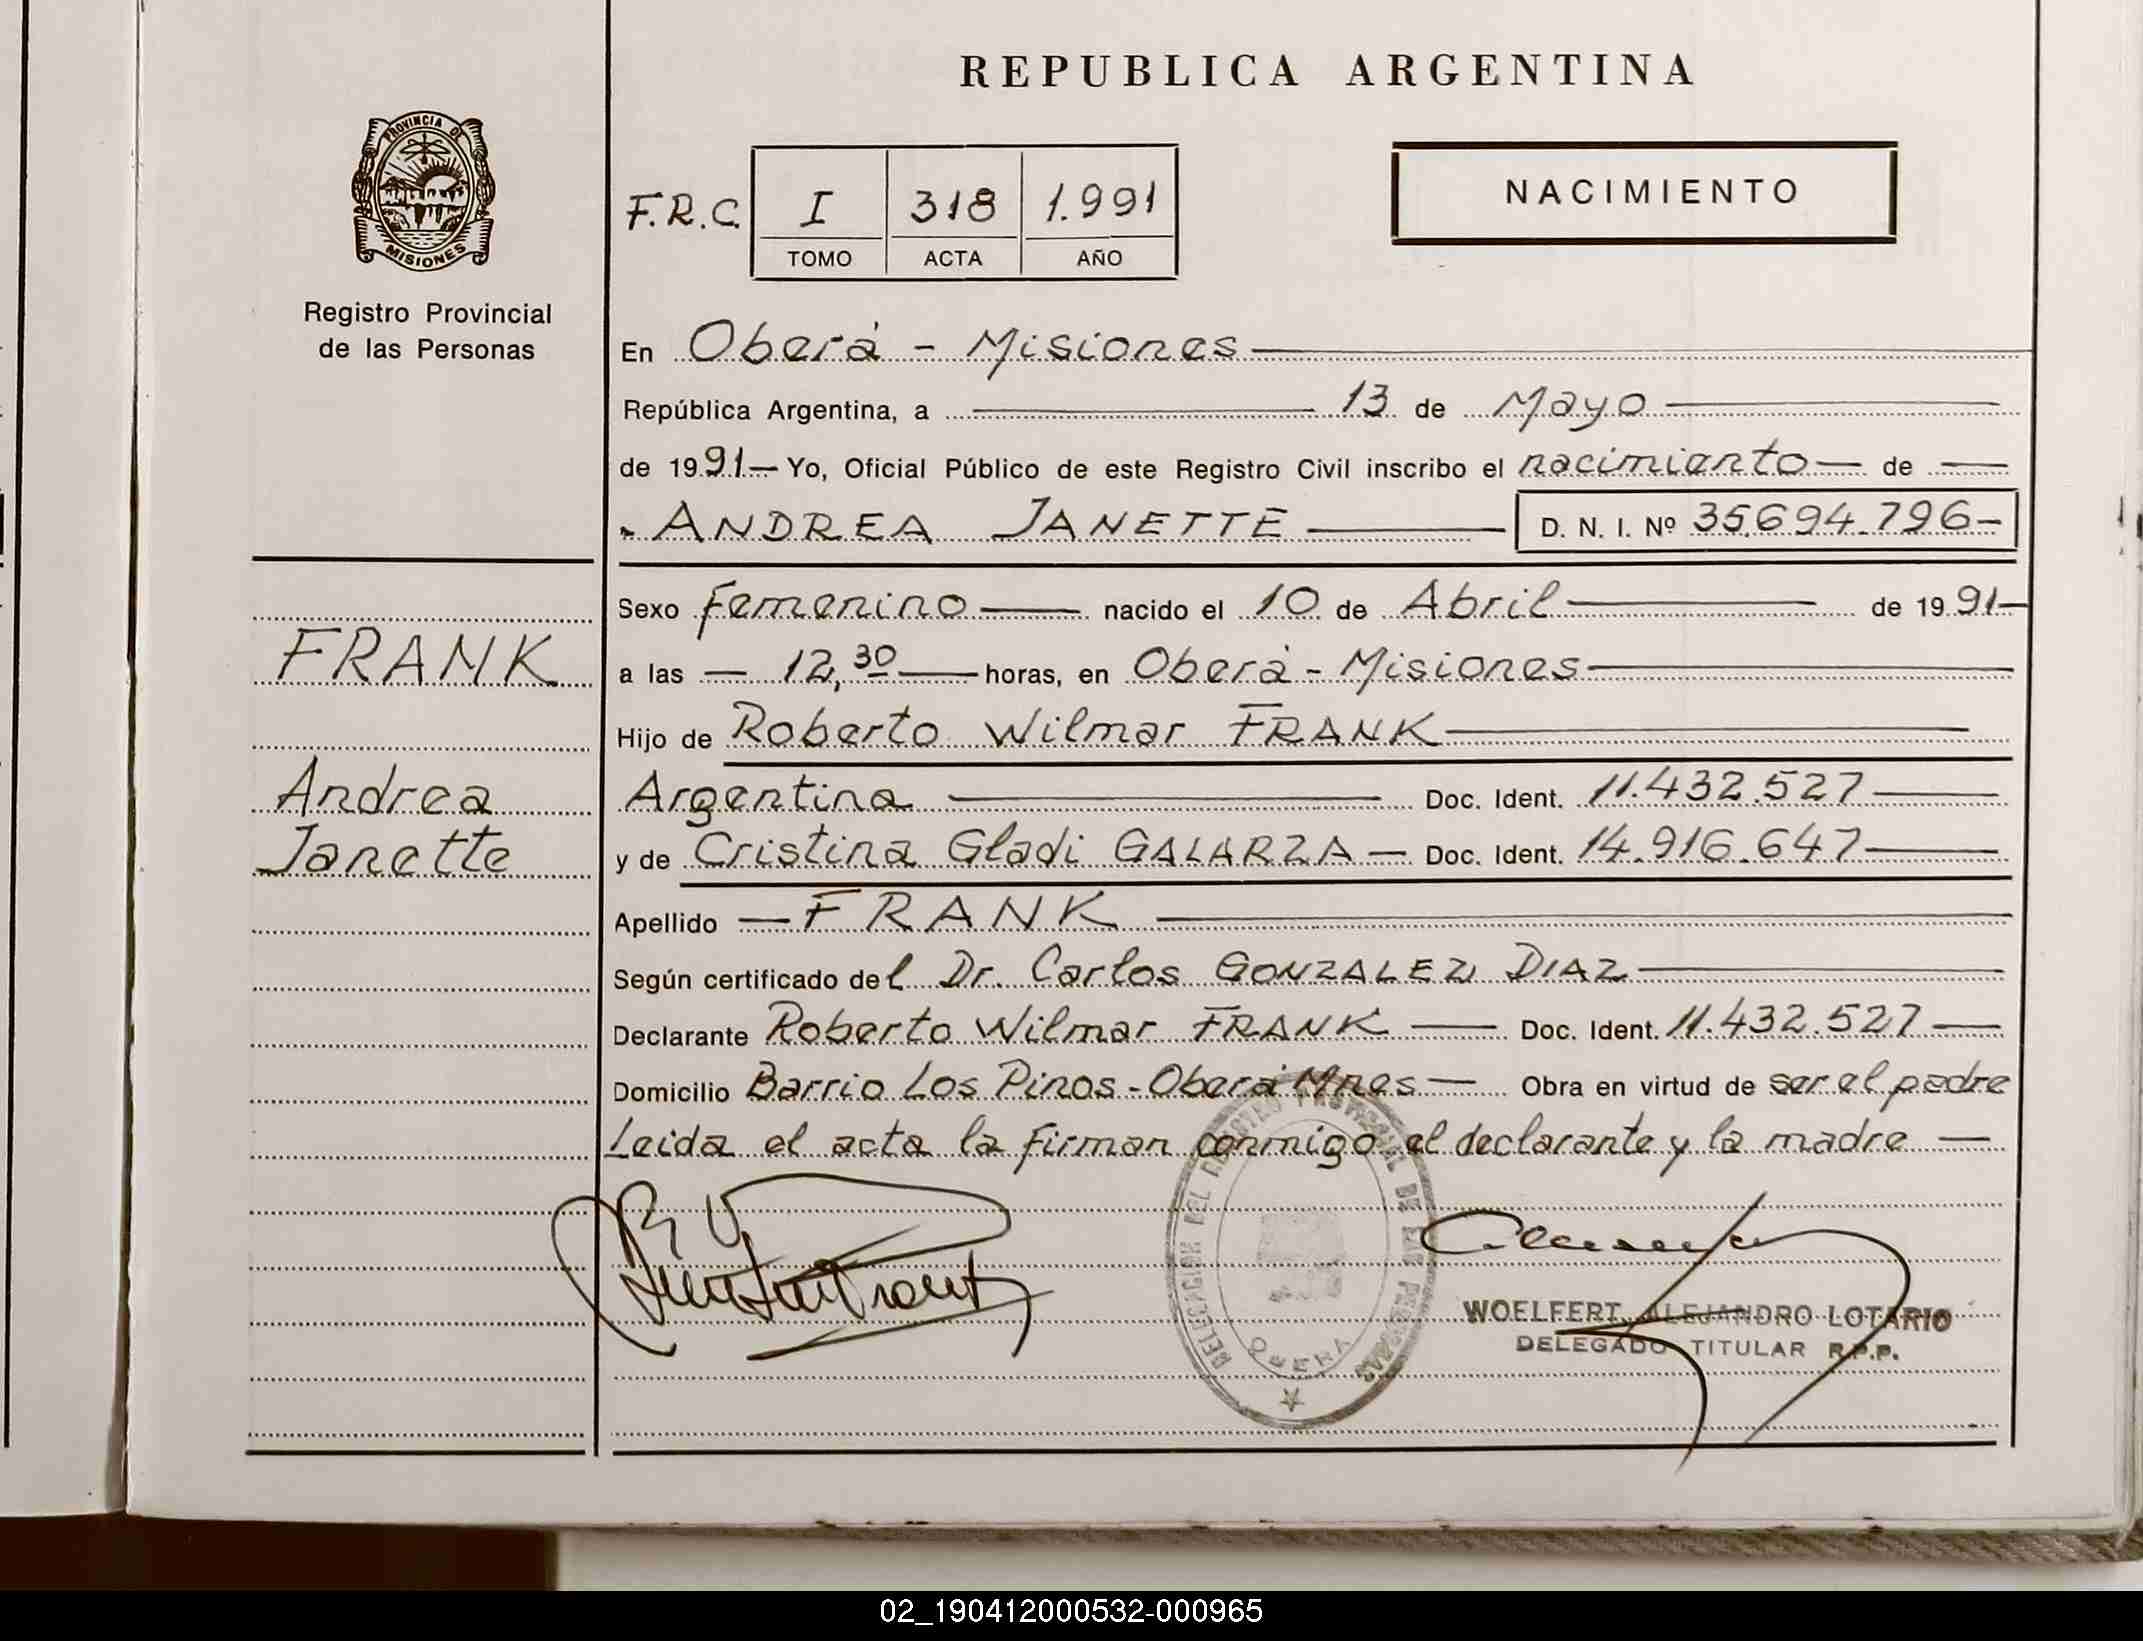 REPUBLICA ARGENTINA
PROVINCIA DE
MISIONES
Registro Provincial
de las Personas
F.R.C. I 318 1.991
TOMO ACTA AÑO
NACIMIENTO
En Oberá - Misiones
República Argentina, a 13 de Mayo
de 1991 Yo, Oficial Público de este Registro Civil inscribo el nacimiento de
ANDREA JANETTE D. N. I. Nº 35.694.796
FRANK
Andrea
Janette
Sexo femenino nacido el 10 de Abril de 1991
a las 12,30 horas, en Oberá - Misiones
Hijo de Roberto Wilmar FRANK
Argentina Doc. Ident. 11.432.527
y de Cristina Gladi GALARZA Doc. Ident. 14.916.647
Apellido FRANK
Según certificado del Dr. Carlos GONZALEZ DIAZ
Declarante Roberto Wilmar FRANK Doc. Ident. 11.432.527
Domicilio Barrio Los Pinos - Oberá Mnes Obra en virtud de ser el padre
Leida el acta la firman conmigo el declarante y la madre
DELEGACION DEL REGISTRO PROVINCIAL DE LAS PERSONAS
OBERA
WOELFERT, ALEJANDRO LOTARIO
DELEGADO TITULAR R.P.P.
02_190412000532-000965